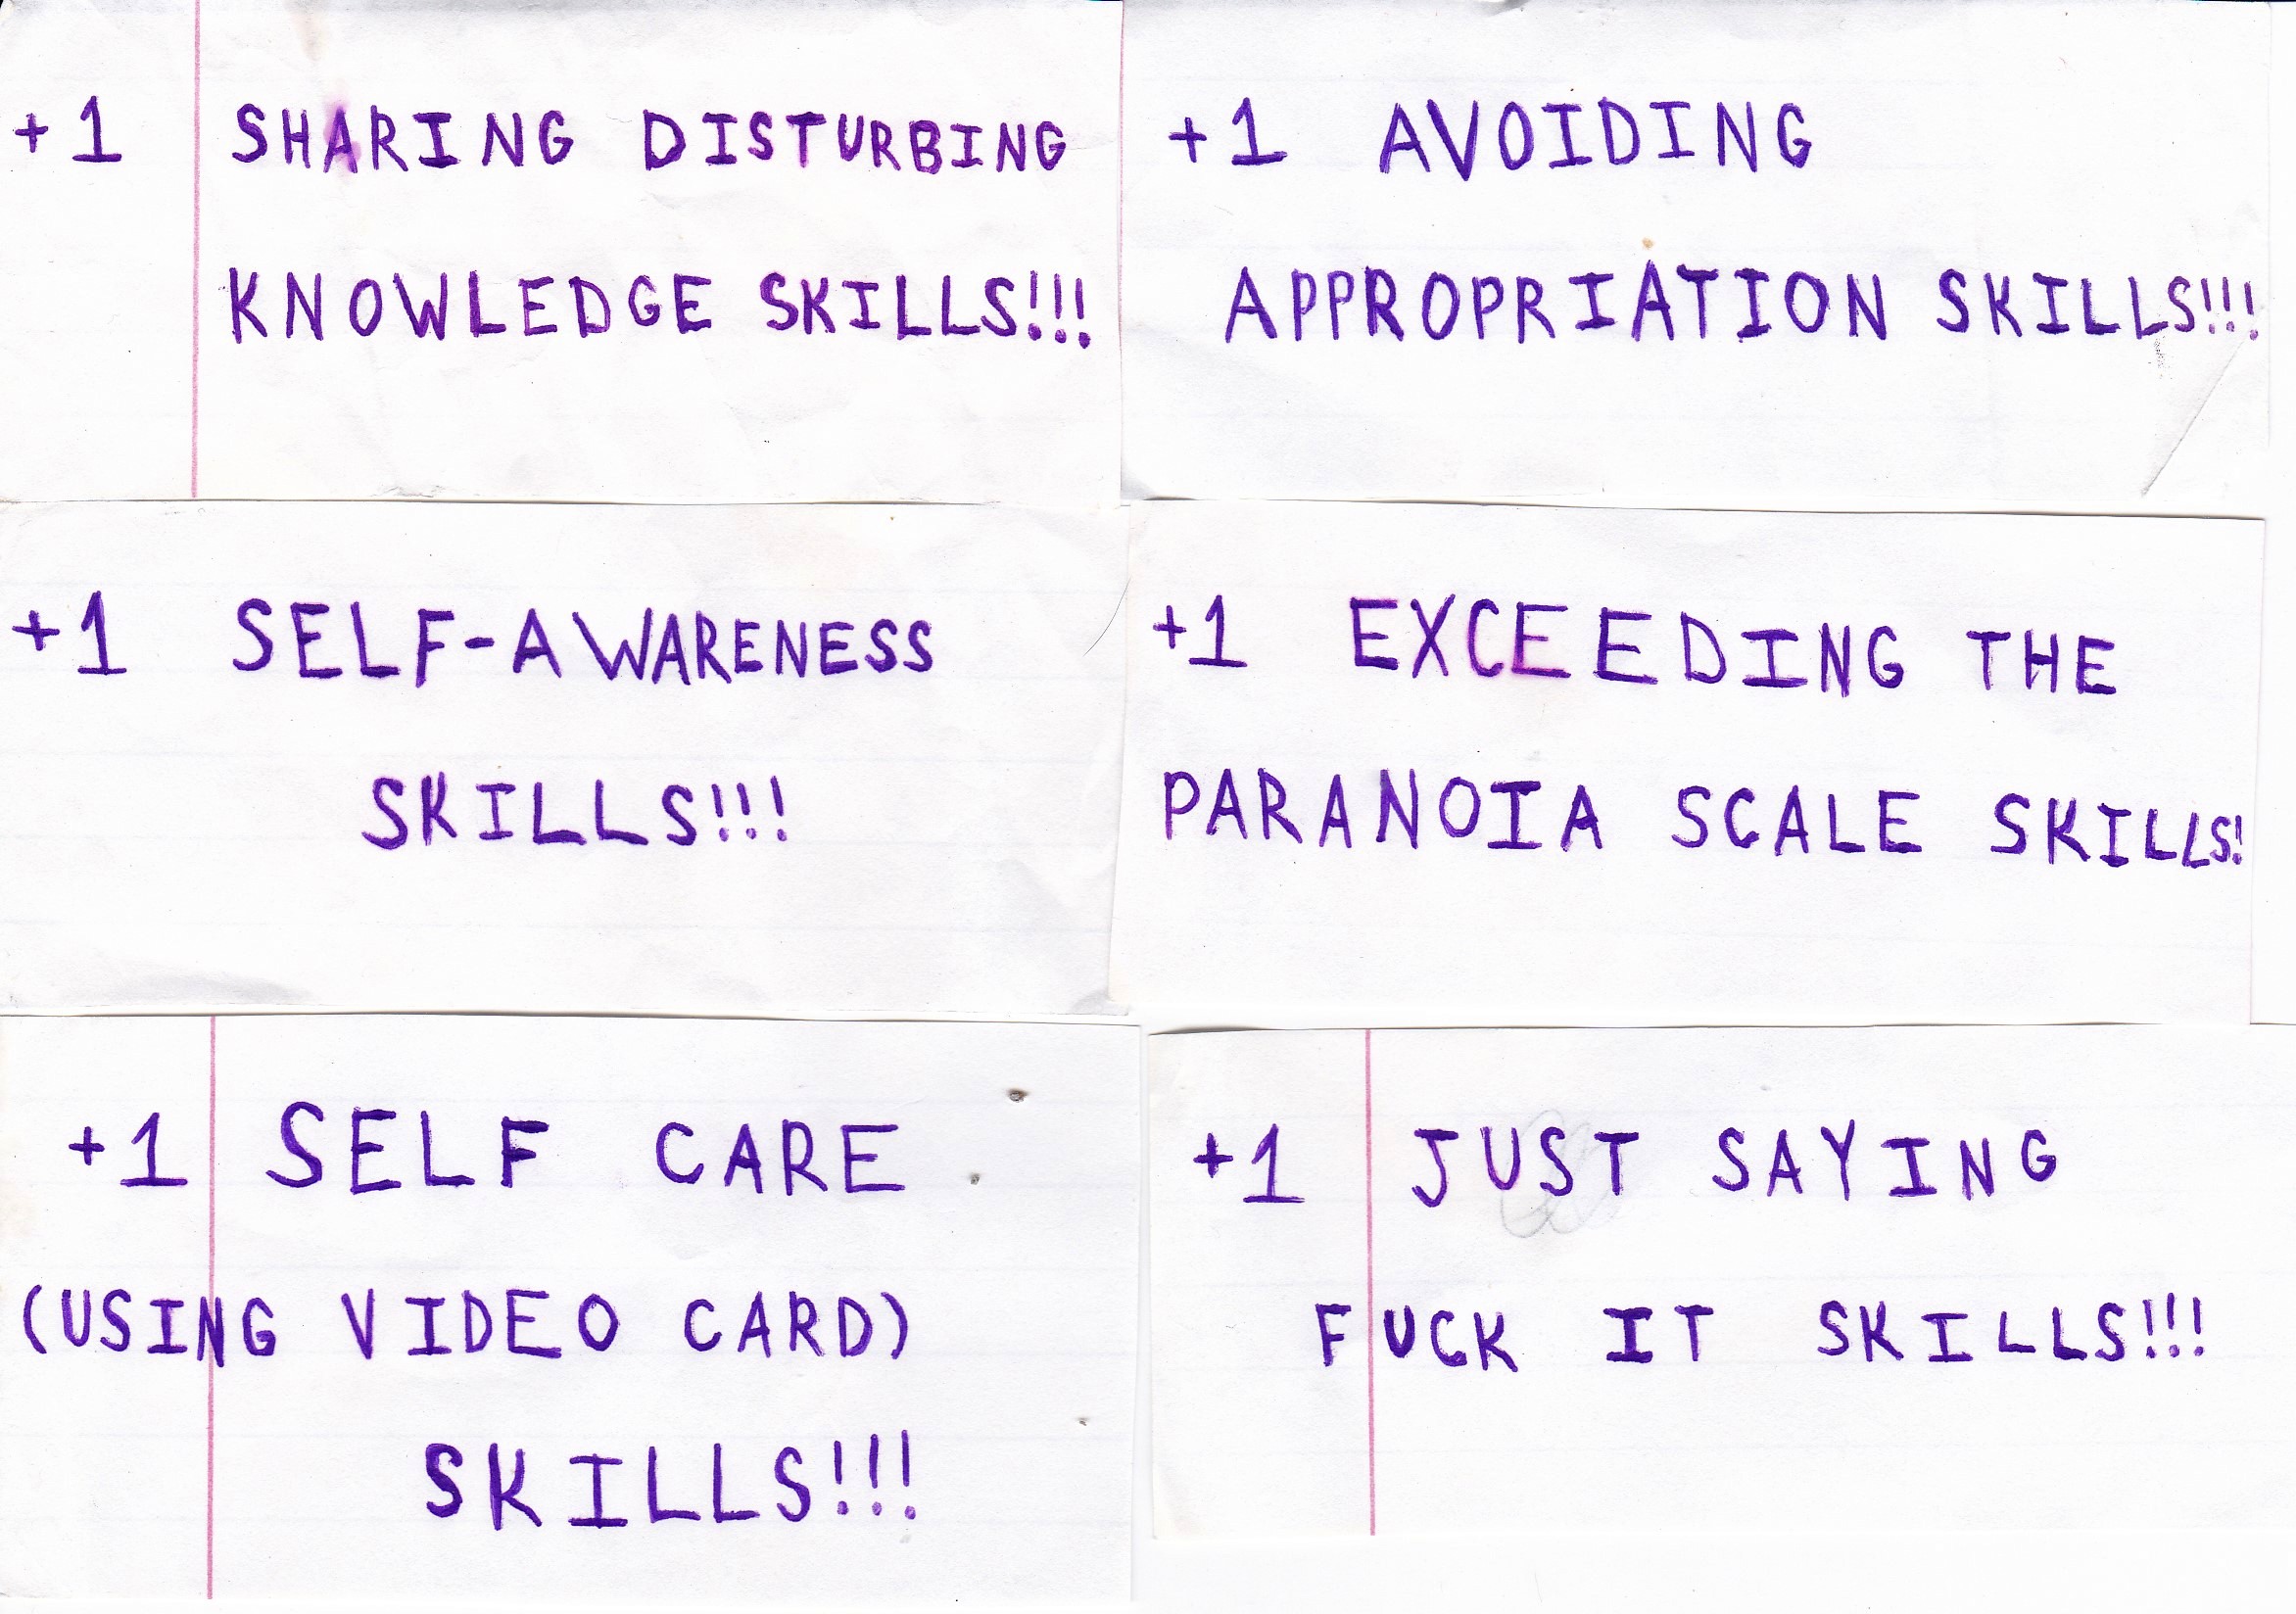 +1 SHARING DISTURBING
KNOWLEDGE SKILLS!!!
+1 AVOIDING
APPROPRIATION SKILLS!!!
+1 SELF-AWARENESS
SKILLS!!!
+1 EXCEEDING THE
PARANOIA SCALE SKILLS!
+1 SELF CARE
(USING VIDEO CARD)
SKILLS!!!
+1 JUST SAYING
FUCK IT SKILLS!!!